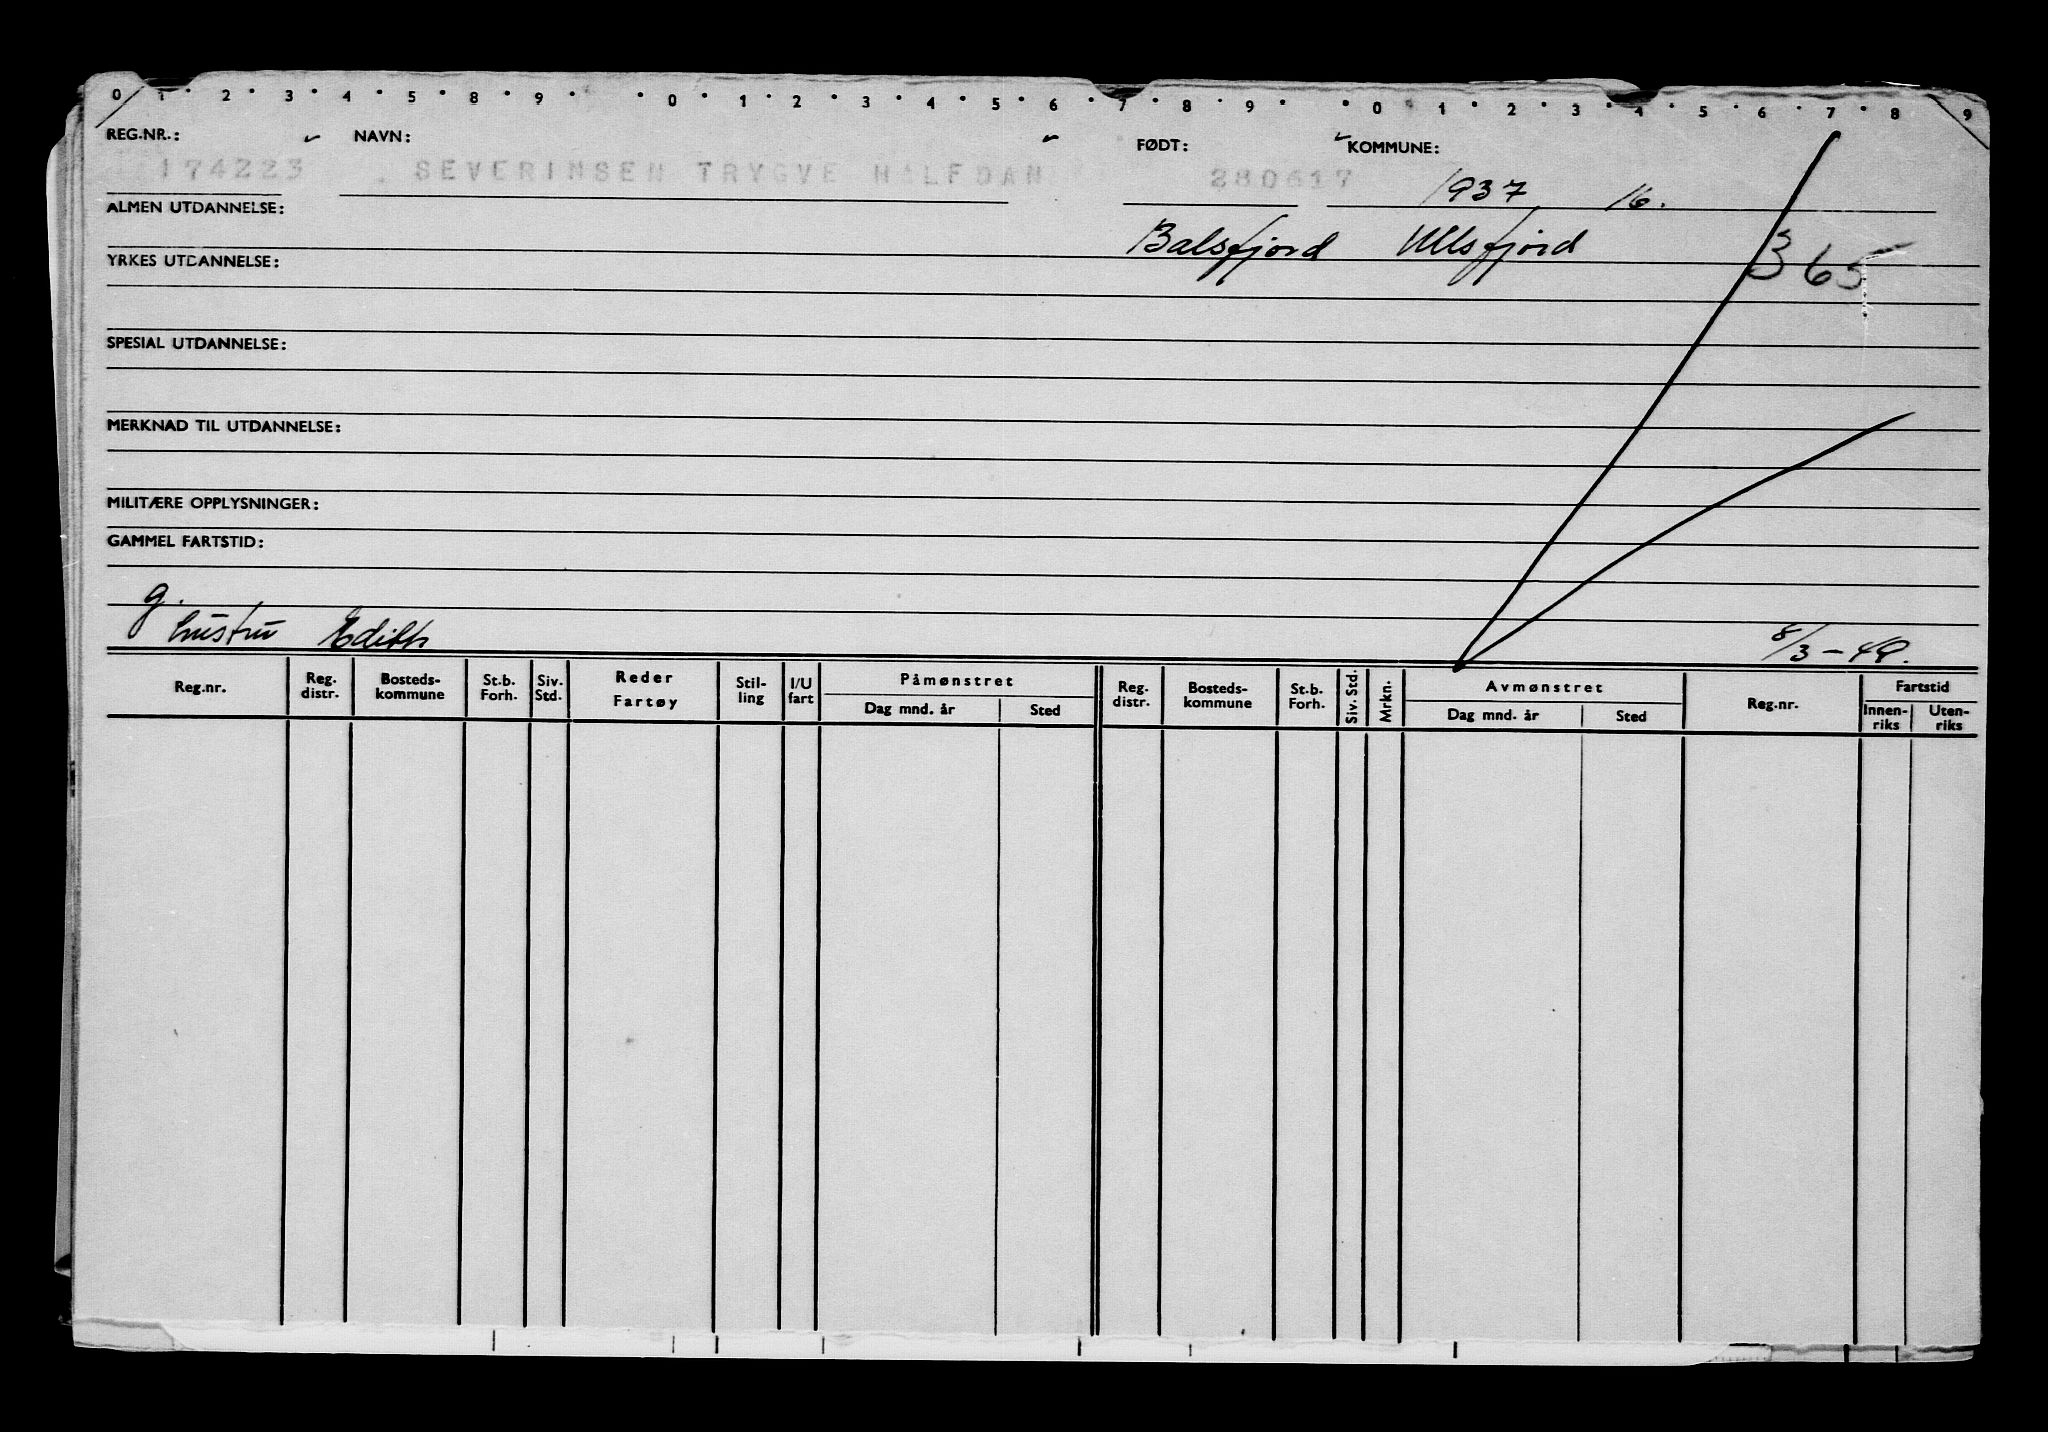 0 1 2 3 4 5 8 9 0 1 2 3 4 5 6 7 8 9 0 1 2 3 4 5 6 7 8 9
REG.NR.: NAVN: FØDT: KOMMUNE:
174223 SEVERINSEN TRYGVE HALFDAN 280617 1937 16.
ALMEN UTDANNELSE: Balsfjord Ullsfjord 365
YRKES UTDANNELSE:
SPESIAL UTDANNELSE:
MERKNAD TIL UTDANNELSE:
MILITÆRE OPPLYSNINGER:
GAMMEL FARTSTID:
g.
hustru Edith 8/3-49.
Reg.nr. Reg. distr. Bosteds-kommune St.b. Forh. Siv. Std. Reder Fartøy Stil-ling I/U fart Påmønstret Reg. distr. Bosteds-kommune St.b. Forh. Siv. Std. Mrkn. Avmønstret Reg.nr. Fartstid
Dag mnd. år Sted Dag mnd. år Sted Innen-riks Uten-riks